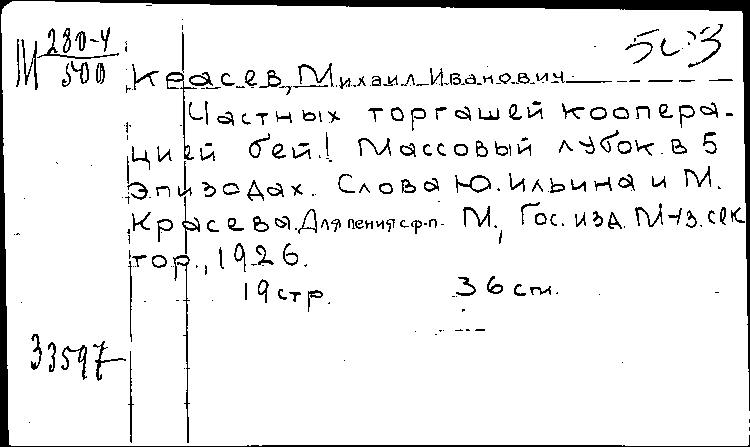 М 280-4
500
503
Красев, Михаил Иванович
Частных торгашей коопера-
цией бей! Массовый лубок в 5
эпизодах. Слова Ю. Ильина и М.
Красева. Для пения с ф-п. М., Гос. изд. Муз. сек
тор., 1926.
19 стр. 36 см.
33597